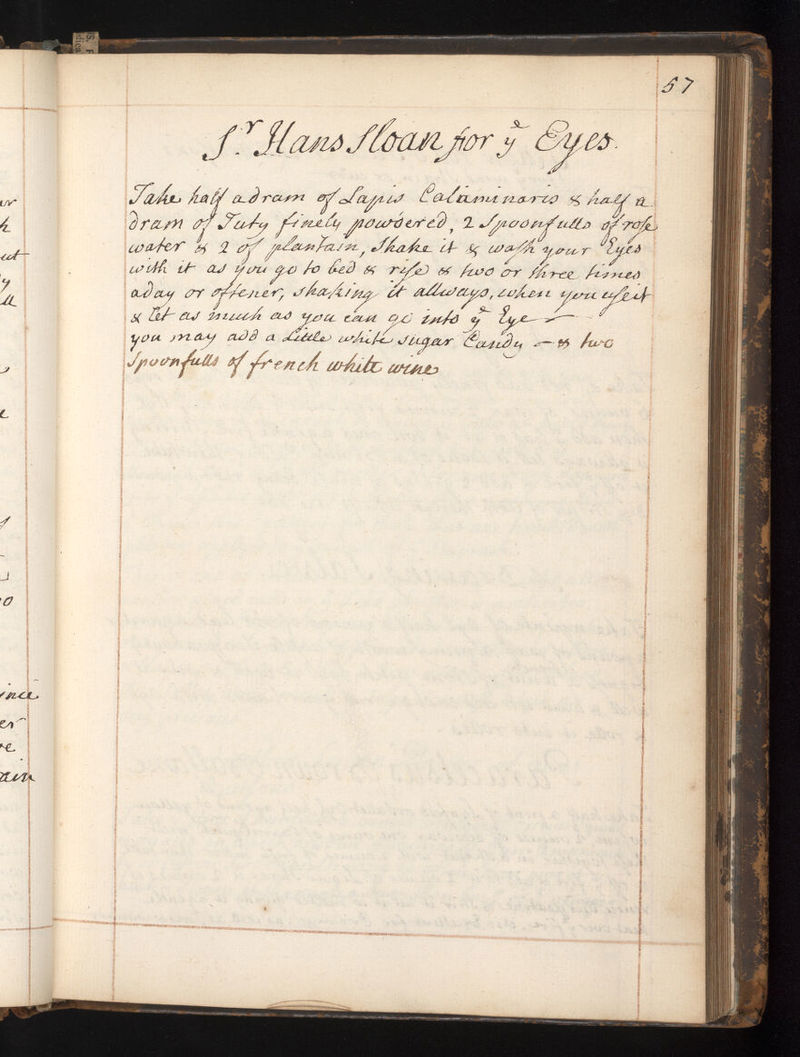 57
Sr. Hans Sloan for ye Eyes.
Take half a dram of Lapis Calaminaris & half a
dram of Tuty finely powdered, 2 Spoonfulls of rose
water & 2 of plantain, Shake it & wash your Eyes
with it as you go to bed & rise & two or three times
a day or oftener, shaking it allways, when you use it
& let as much as you can go into ye Eye —
you may add a little white sugar Candy — & two
Spoonfulls of french white wine